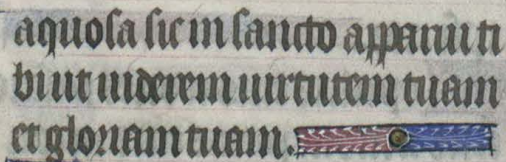 aquosa sic in sancto apparui ti
bi ut uiderem uirtutem tuam
et gloriam tuam.